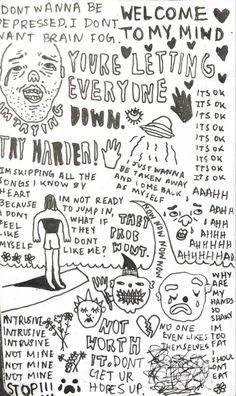 I DONT WANNA BE
DEPRESSED. I DONT
WANT BRAIN FOG.
WELCOME
TO MY MIND
YOU'RE LETTING
EVERYONE
DOWN.
I'M TRYING
TRY HARDER!
ITS OK
ITS OK
ITS OK
ITS OK
ITS OK
ITS OK
ITS OK
ITS OK
I JUST WANNA
BE TAKEN AWAY
AND COME BACK
AS MYSELF
IM SKIPPING ALL THE
SONGS I KNOW BY
HEART
BECAUSE
I DONT
FEEL
LIKE
MYSELF
IM NOT READY
TO JUMP IN.
WHAT IF
THEY
DONT
LIKE ME?
THEY
PROB
WONT.
NOW NOW NOW NOW
WHY
ARE
MY
HANDS
SO
SHAKY
IM
TOO
EAT
I
SHOUL
DNT
EAT
INTRUSIVE
INTRUSIVE
INTRUSIVE
NOT MINE
NOT MINE
NOT MINE
STOP!!!
NOT
WORTH
IT. DONT
GET UR
HOPES UP.
NO ONE
EVEN LIKES
THEMSELVES